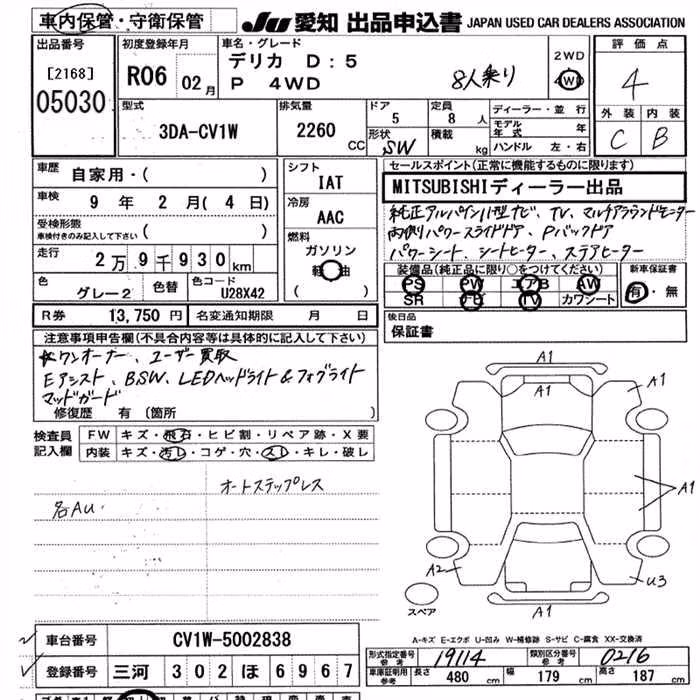 車内保管・守衛保管 JU 愛知 出品申込書 JAPAN USED CAR DEALERS ASSOCIATION
出品番号 [2168] 05030
初度登録年月 R06 02月
車名・グレード デリカ D:5
P 4WD 8人乗り
2WD 4WD
評価点 4
外装 内装
C B
型式 3DA-CV1W
排気量 2260 CC
ドア 5 定員 8人
形状 SW 積載 kg
ディーラー・並行
モデル年式 年
ハンドル 左・右
車歴 自家用・( )
車検 9年 2月(4日)
受検形態 車検付きのみ記入して下さい ( )
走行 2万9千930km
色 グレー2 色替 色コード U28X42
シフト IAT
冷房 AAC
燃料 ガソリン
軽油
( )
セールスポイント(正常に機能するものに限ります)
MITSUBISHIディーラー出品
純正アルパイン11型ナビ、TV、マルチアラウンドモニター
両側パワースライドドア、Pバックドア
パワーシート、シートヒーター、ステアヒーター
装備品(純正品に限り○をつけてください)
PS PW エアB AW
SR ナビ TV カワシート
新車保証書
有・無
R券 13,750円 名変通知期限 月 日
後日品
保証書
注意事項申告欄(不具合内容等は具体的に記入して下さい)
ワンオーナー、ユーザー買取
Eアシスト、BSW、LEDヘッドライト&フォグライト
マッドガード
修復歴 有 (箇所
検査員記入欄 FW キズ・飛石・ヒビ割・リペア跡・X要
内装 キズ・汚れ・コゲ・穴・スレ・キレ・破レ
オートステップレス
各AU
A1
A1
A1
A1
A2
U3
A1
スペア
A-キズ E-エクボ U-凹み W-補修跡 S-サビ C-腐食 XX-交換済
車台番号 CV1W-5002838
登録番号 三河 302 ほ 6967
形式指定番号 参考 19114 類別区分番号 参考 0216
車庫証明用 参考 長さ 480 cm 幅 179 cm 高さ 187 cm